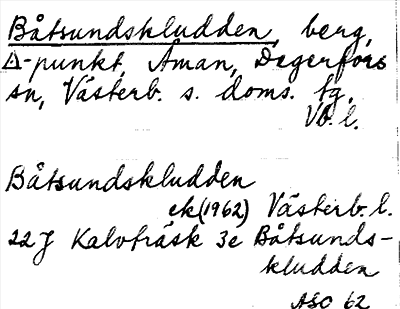 Båtsundskludden, berg,
△-punkt, Åman, Degerfors
sn, Västerb. s. doms. tg.
Vb. l.
Båtsundskludden
ek (1962) Västerb. l.
22 J Kalvträsk 3e Båtsunds-
kludden
ASO 62